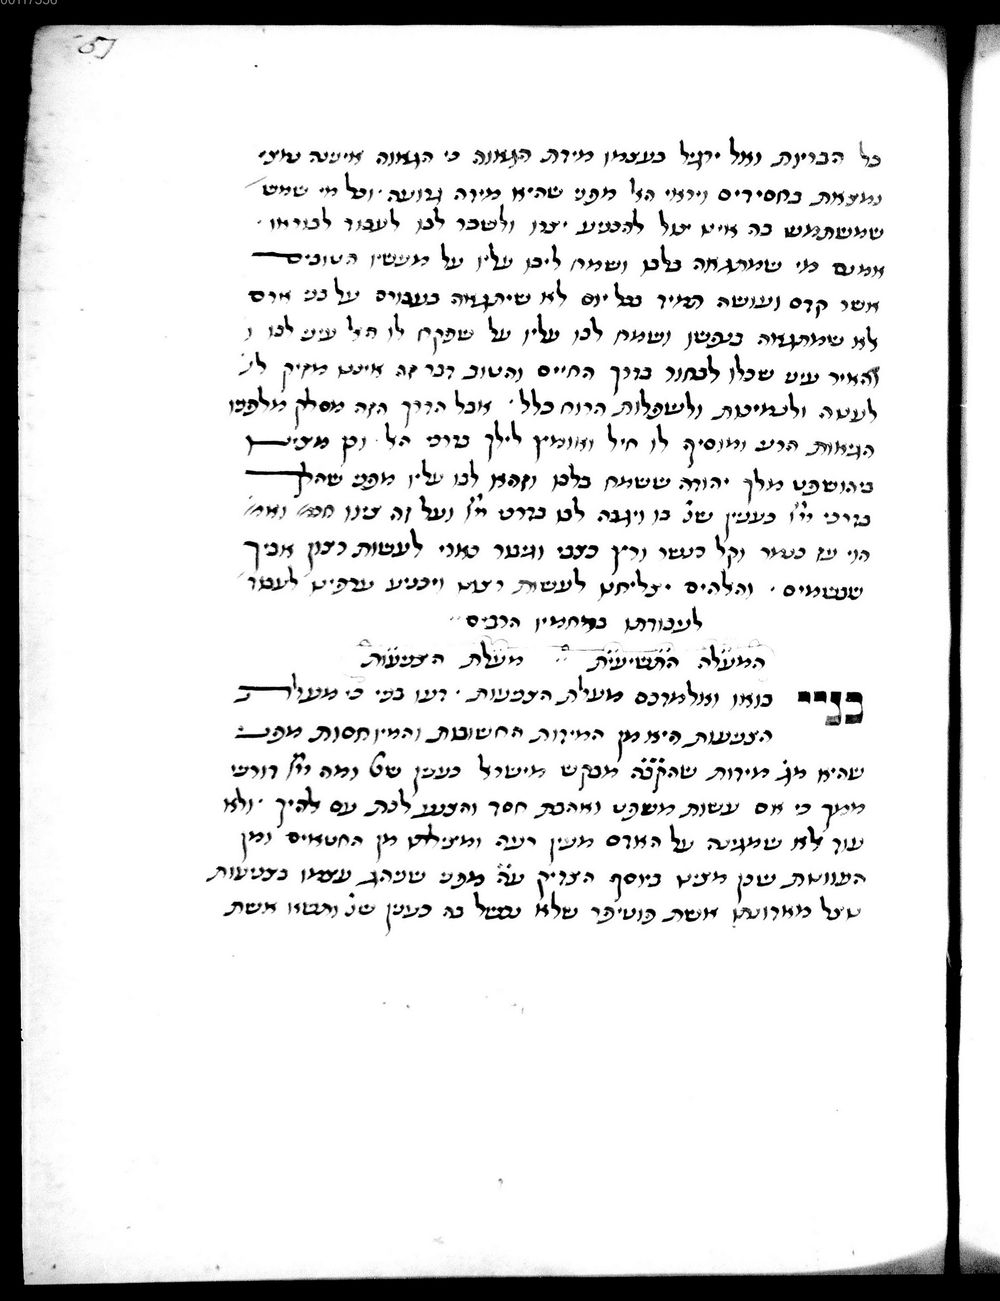 כל הבריות ואל ירגיל בעצמו מידת הגאוה כי הגאוה איננה
נמצאת בחסידים ויראי הא׳ מפני שהיא מידה גרועה · וכל מי שמש׳
שמשתמש בה אינו יכול להכניע יצרו ולשבר לבו לעבוד לבוראו ·
אמנם מי שמתגאה בלבו ושמח ליבו עליו על מעשיו הטובים
אשר קדם ועושה תמיד בכל יום לא שיתגאה בעבורם על בני אדם
לא שמתגאה בנפשו ושמח לבו עליו על שפקח לו הא׳ עיני לבו ו
והאיר עיני שכלו לבחור בדרך החיים והטוב דבר זה אינו מזיק לנ׳
לענוה ולנמיכות ולשפלות הרוח כלל · אבל הדרך הזה מסלק מלפניו
הגיאות הרע ומוסיף לו חיל ואומץ לילך בדרכי הא׳ · וכן מצינו
ביהושפט מלך יהודה ששמח בלבו וגהא לבו עליו מפני שהלך
בדרכי יי׳ כענין שנ׳ בו ויגבה לבו בדרכי יי׳ ועל זה צוונו חכמ׳ ואמ׳
הוי עז כנמר וקל כנשר ורץ כצבי וגבור כארי לעשות רצון אביך
שבשמים · והאלהים יצליחנו לעשות רצונו ויכניע ערפינו לעבוד׳
לעבודתו ברחמיו הרבים ··
המעלה התשיעית ·· מעלת הצניעות
בניי בואו ואלמדכם מעלת הצניעות · דעו בני כי מעלת
הצניעות היא מן המידות החשובות והמיוחסות מפני
שהיא מג׳ מידות שהקב״ה מבקש מישראל כענין שנ׳ ומה יי׳ דורש
ממך כי אם עשות משפט ואהבת חסד והצנע לכת עם אלהיך · ולא
עוד אלא שמגינה על האדם מעין רעה ומצילתו מן החטאים ומן
העוונות שכן מצינו ביוסף הצדיק ע״ה מפני שנהג עצמו בצניעות
ניצל מארועתו אשת פוטיפר שלא נכשל בה כענין שנ׳ ותשא אשת